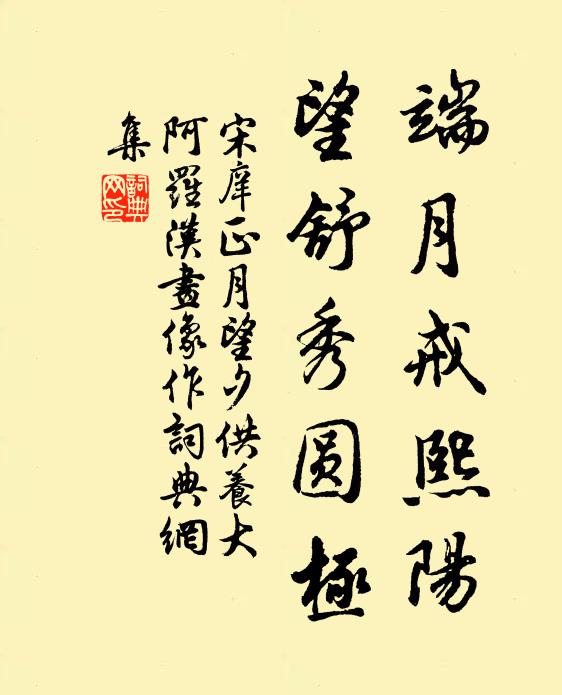 端月戒熙陽
望舒秀圓極
宋庠正月望夕供養大
阿羅漢畫像作詞典網
集
詞典
网印